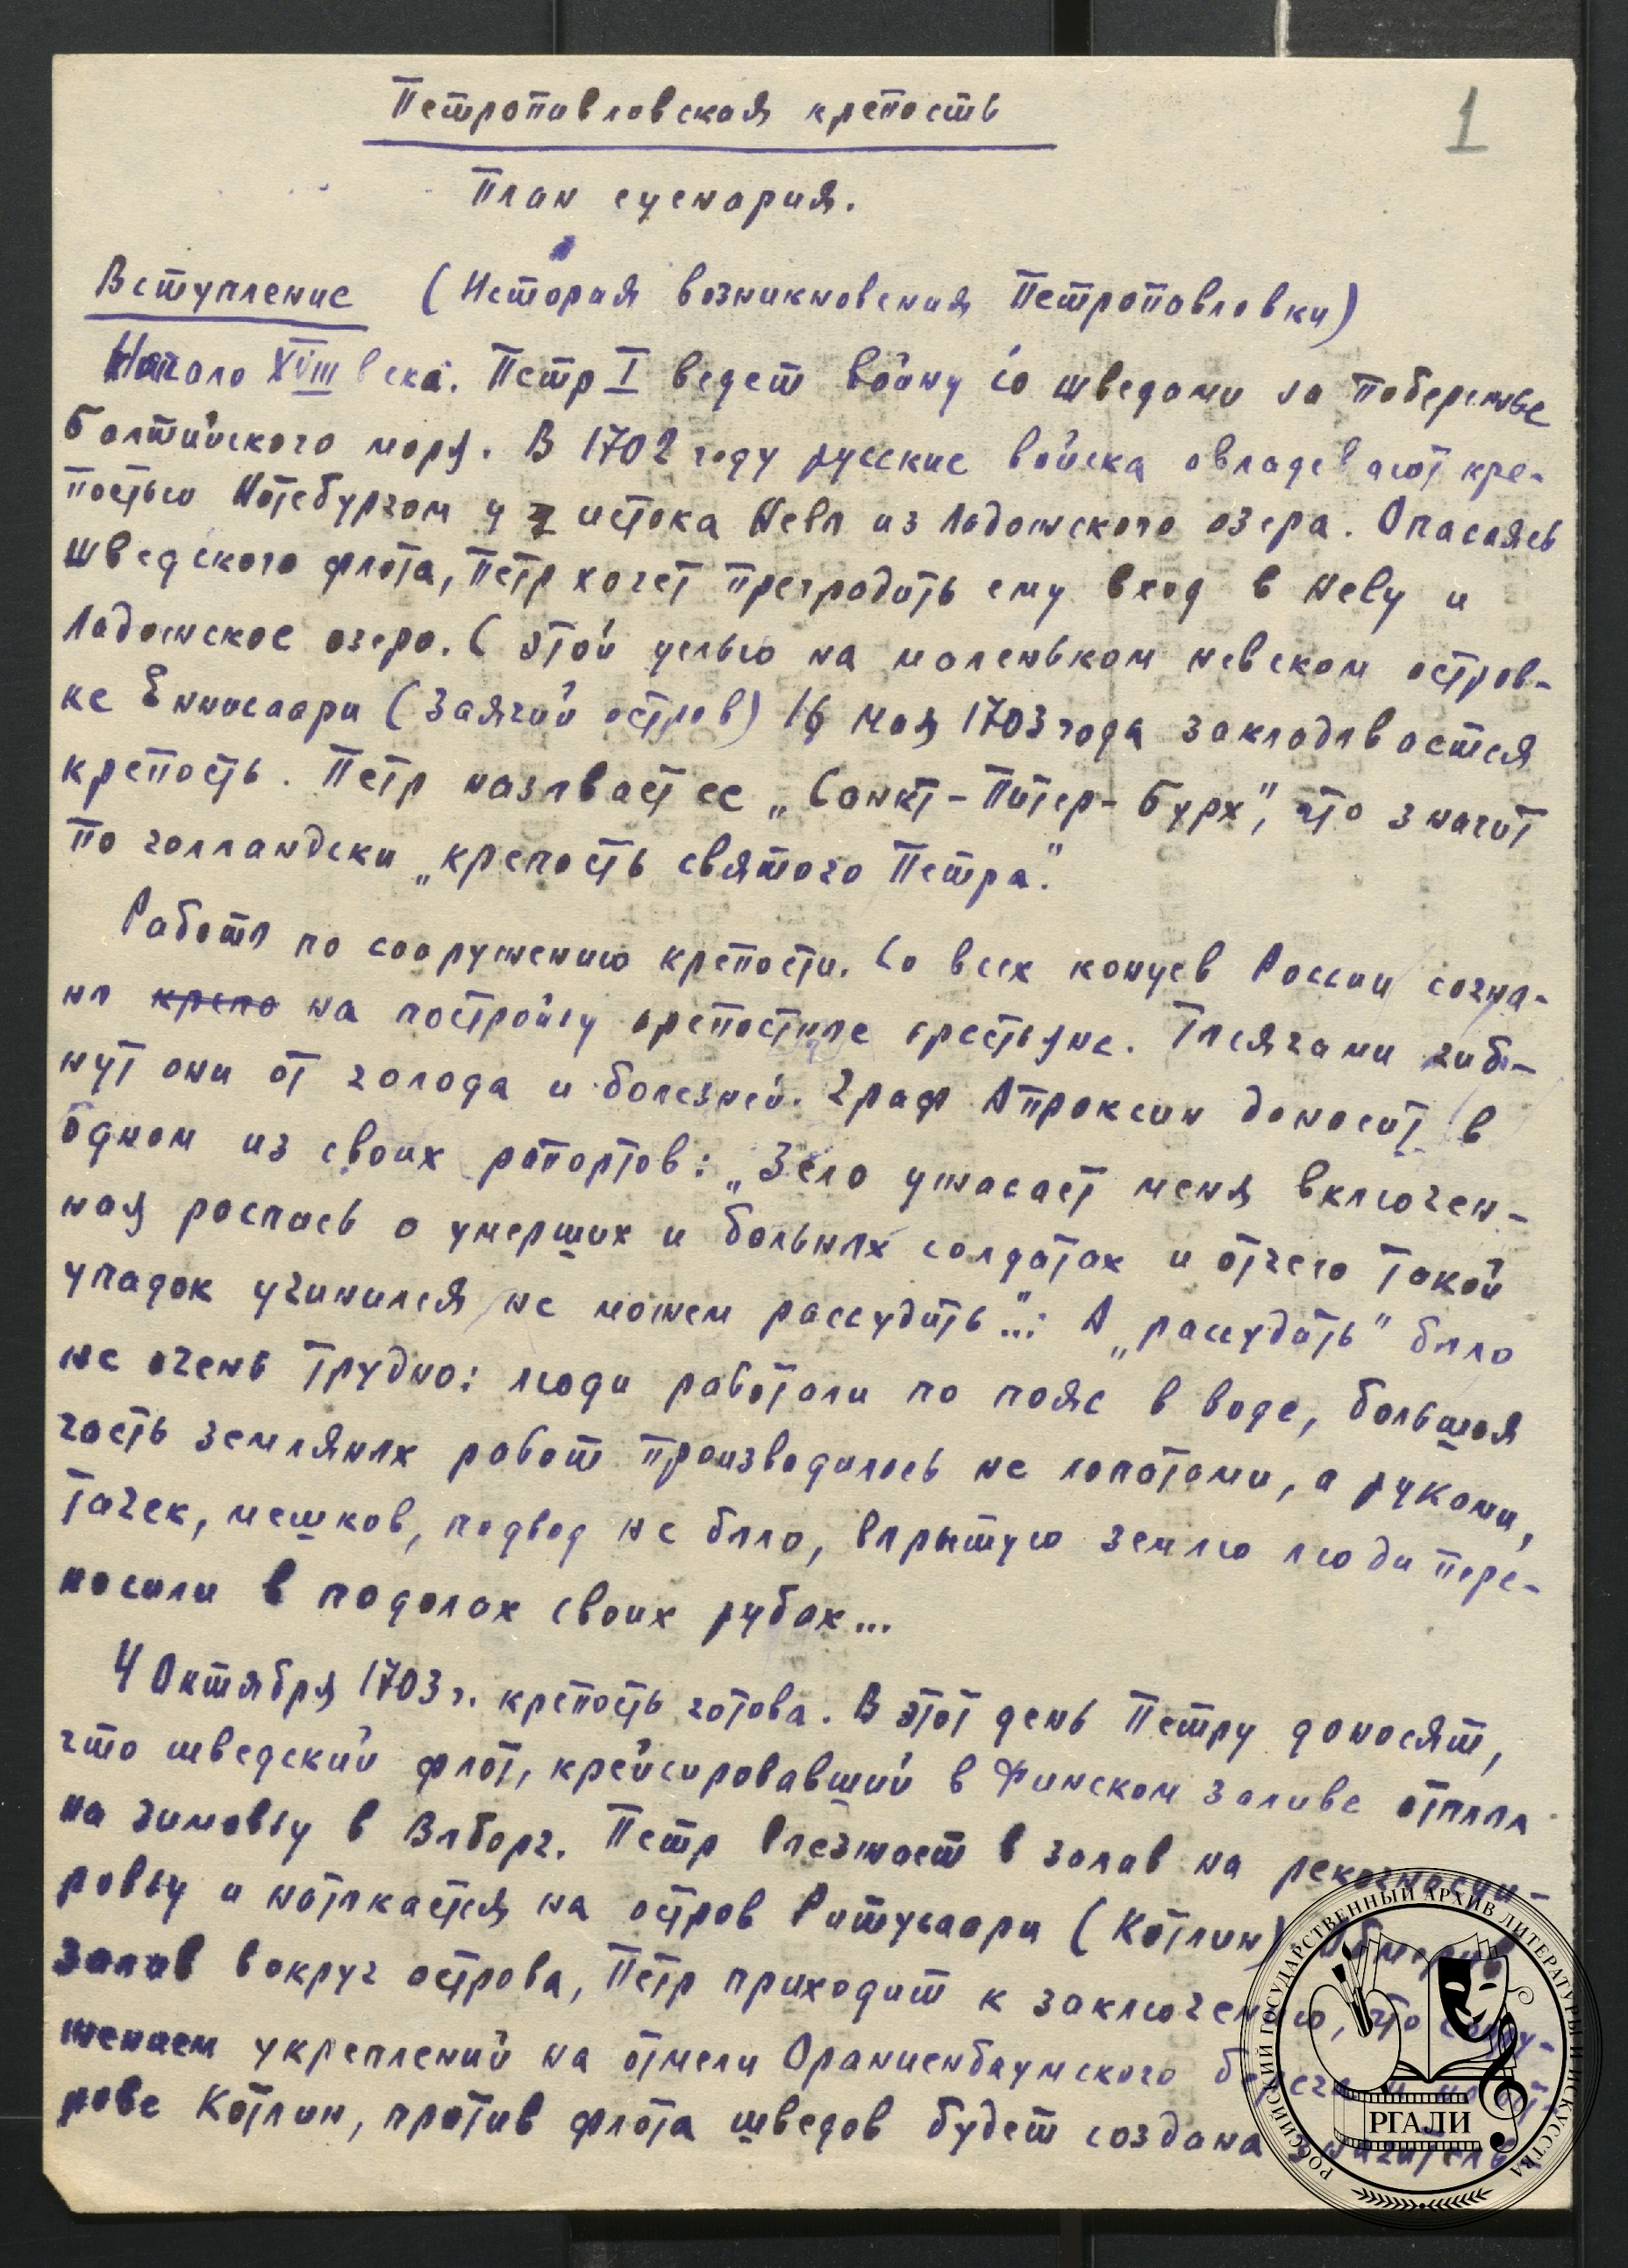 1
Петропавловская крепость
План сценария.
Вступление (История возникновения Петропавловки)
Начало XVIII века. Петр I ведет войну со шведами за побережье
Балтийского моря. В 1702 году русские войска овладевают кре-
постью Нотебургом у истока Невы из Ладожского озера. Опасаясь
шведского флота, Петр хочет преградить ему вход в Неву и
Ладожское озеро. С этой целью на маленьком невском остров-
ке Енисаари (Заячий остров) 16 мая 1703 года закладывается
крепость. Петр называет ее „Санкт-Питер-Бурх", что значит
по голландски „крепость святого Петра".
Работы по сооружению крепости. Со всех концев России согна-
ны крепо на постройку крепостные крестьяне. Тысячами гиб-
нут они от голода и болезней. Граф Апраксин доносит в
одном из своих рапортов: „Зело ужасает меня включен-
ная роспись о умерших и больных солдатах и отчего такой
упадок учинился не можем рассудить"... А „рассудить" было
не очень трудно: люди работали по пояс в воде, большая
часть земляных работ производилось не лопатами, а руками,
тачек, мешков, подвод не было, вырытую землю люди пере-
носили в подолах своих рубах...
4 Октября 1703 г. крепость готова. В этот день Петру доносят,
что шведский флот, крейсировавший в Финском заливе отплыл
на зимовку в Выборг. Петр выезжает в залив на рекогносци-
ровку и натыкается на остров Ритусаари (Котлин)
залив вокруг острова, Петр приходит к заключению, что соору-
жением укреплений на отмели Ораниенбаумского берега и на ост-
рове Котлин, против флота шведов будет создана значитель-
РОССИЙСКИЙ ГОСУДАРСТВЕННЫЙ АРХИВ ЛИТЕРАТУРЫ И ИСКУССТВА
РГАЛИ